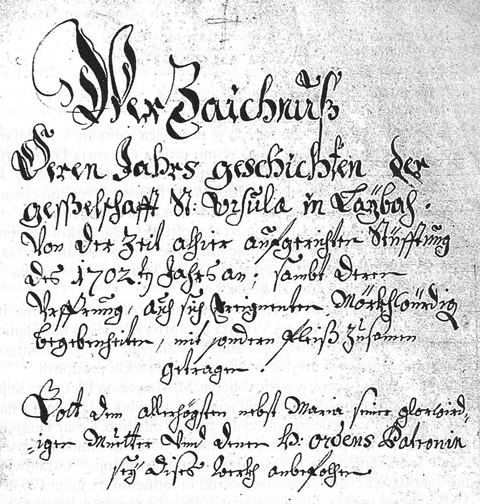 VerZaichnuß
Deren Jahrs geschichten der
geselschafft St: Vrsula in Laÿbach.
Von der Zeit alhier aufgerichten Stüfftung
des 1702tn Jahrs an; sambt deren
Vrsprung, auch sich Ereigneten Mörkhwürdig
begebenheiten, mit sondern fleiß Zusamen
getragen.
Gott dem allerhögsten nebst Maria seiner glorwird-
igen Mutter Vnd denen H: ordens Patronin
seÿ dises werkh anbefohen